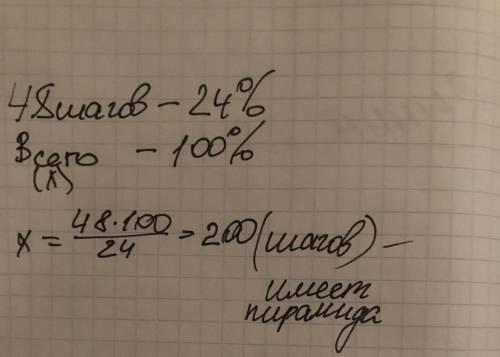 48шагов - 24%
Всего - 100%
(x)
x = 48·100/24 = 200 (шагов) -
имеет
пирамида